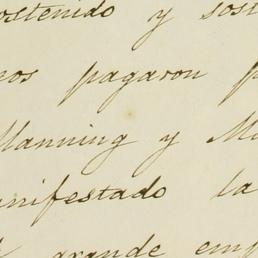 ostenido y sost
nos pagaron p
Manning y M
nifestado la
grande emp